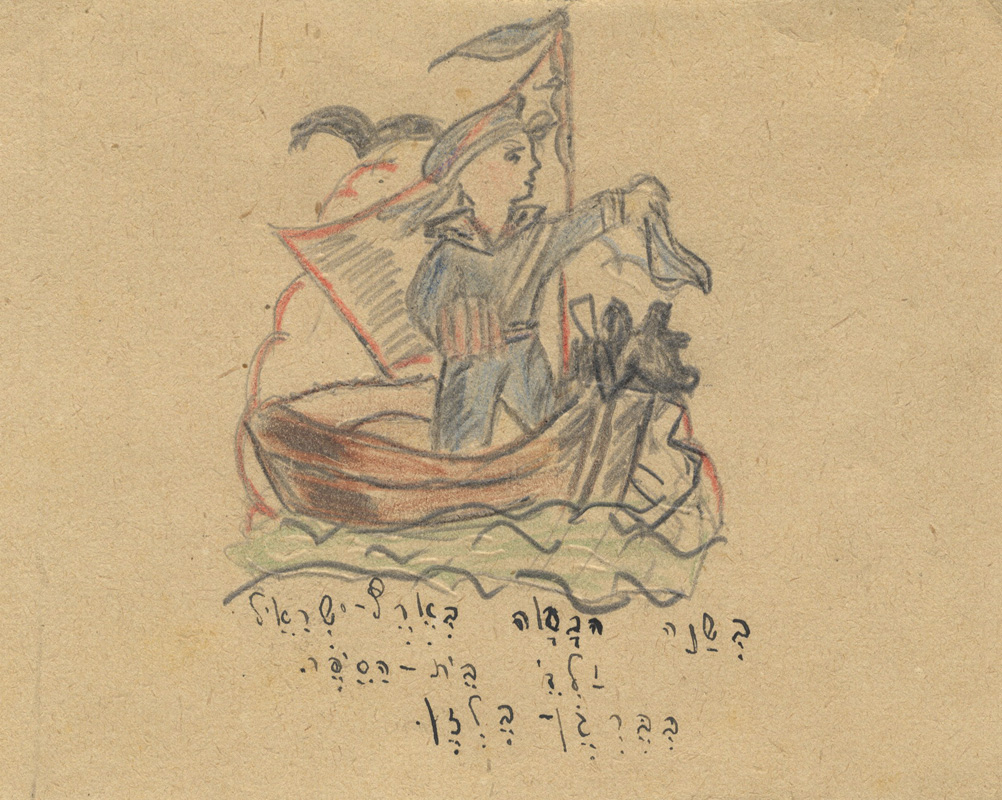 בְּשַנָה הבָּאָה בְּאֵרֶץ-יִשְרַאֵיל
יַלְדֵי בֵּית-הַסֵיפֶר.
בְּבֵּרְגֶן-בֵּלְזֶן.